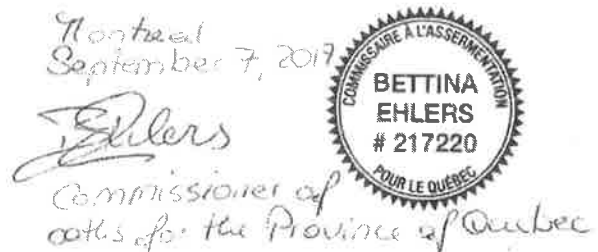 Montreal
September 7, 2017
BEhlers
Commissioner of
oaths for the Province of Quebec
COMMISSAIRE À L'ASSERMENTATION
BETTINA
EHLERS
# 217220
POUR LE QUÉBEC